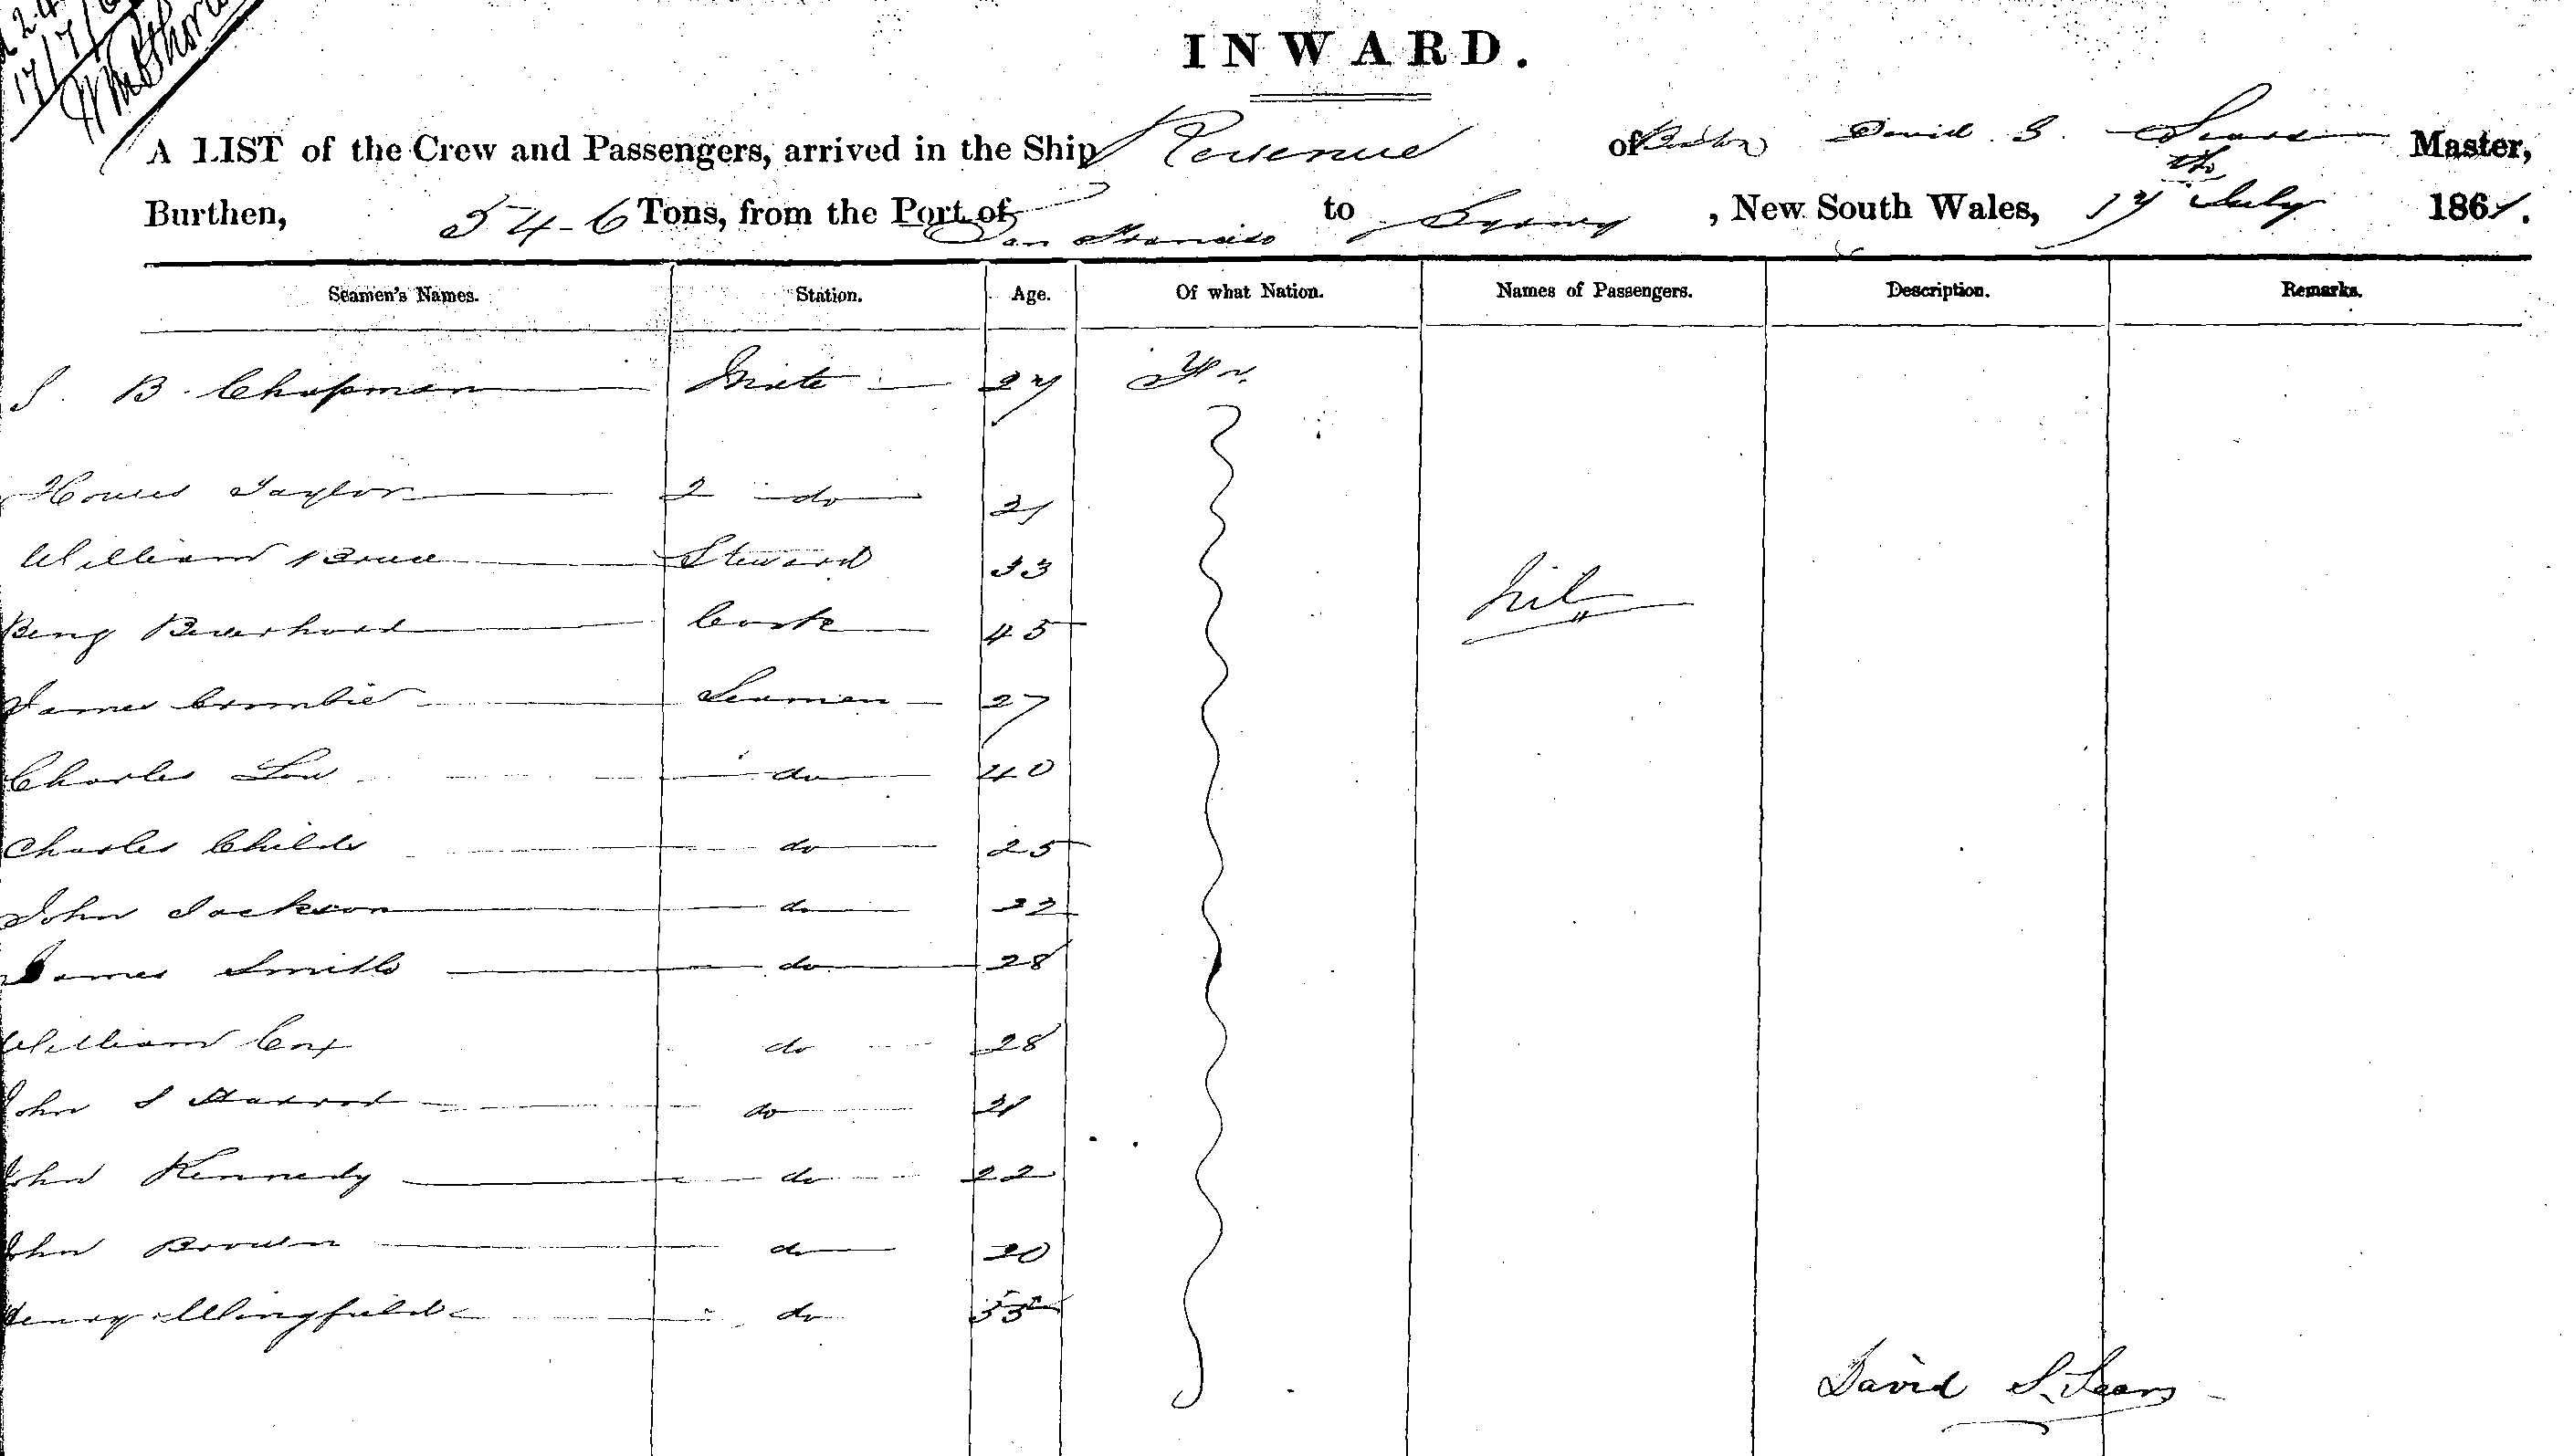 17/7/6
INWARD.
A LIST of the Crew and Passengers, arrived in the Ship Revenue of Boston David S. Sears Master,
Burthen, 546 Tons, from the Port of San Francisco to Sydney, New South Wales, 17th July 1861.
Seamen's Names. Station. Age. Of what Nation. Names of Passengers. Description. Remarks.
S. B. Chapman Mate 27
Taylor 2 do 21
William Bruce Steward 33
Cook 45 Nil
James Crombie Seaman 27
Charles Low do 40
Charles Childs do 25
John Jackson do 22
James Smith do 28
William Cox do 28
John S do 21
John Kennedy do 22
John Brown do 20
Henry Wingfield do
David S. Sears